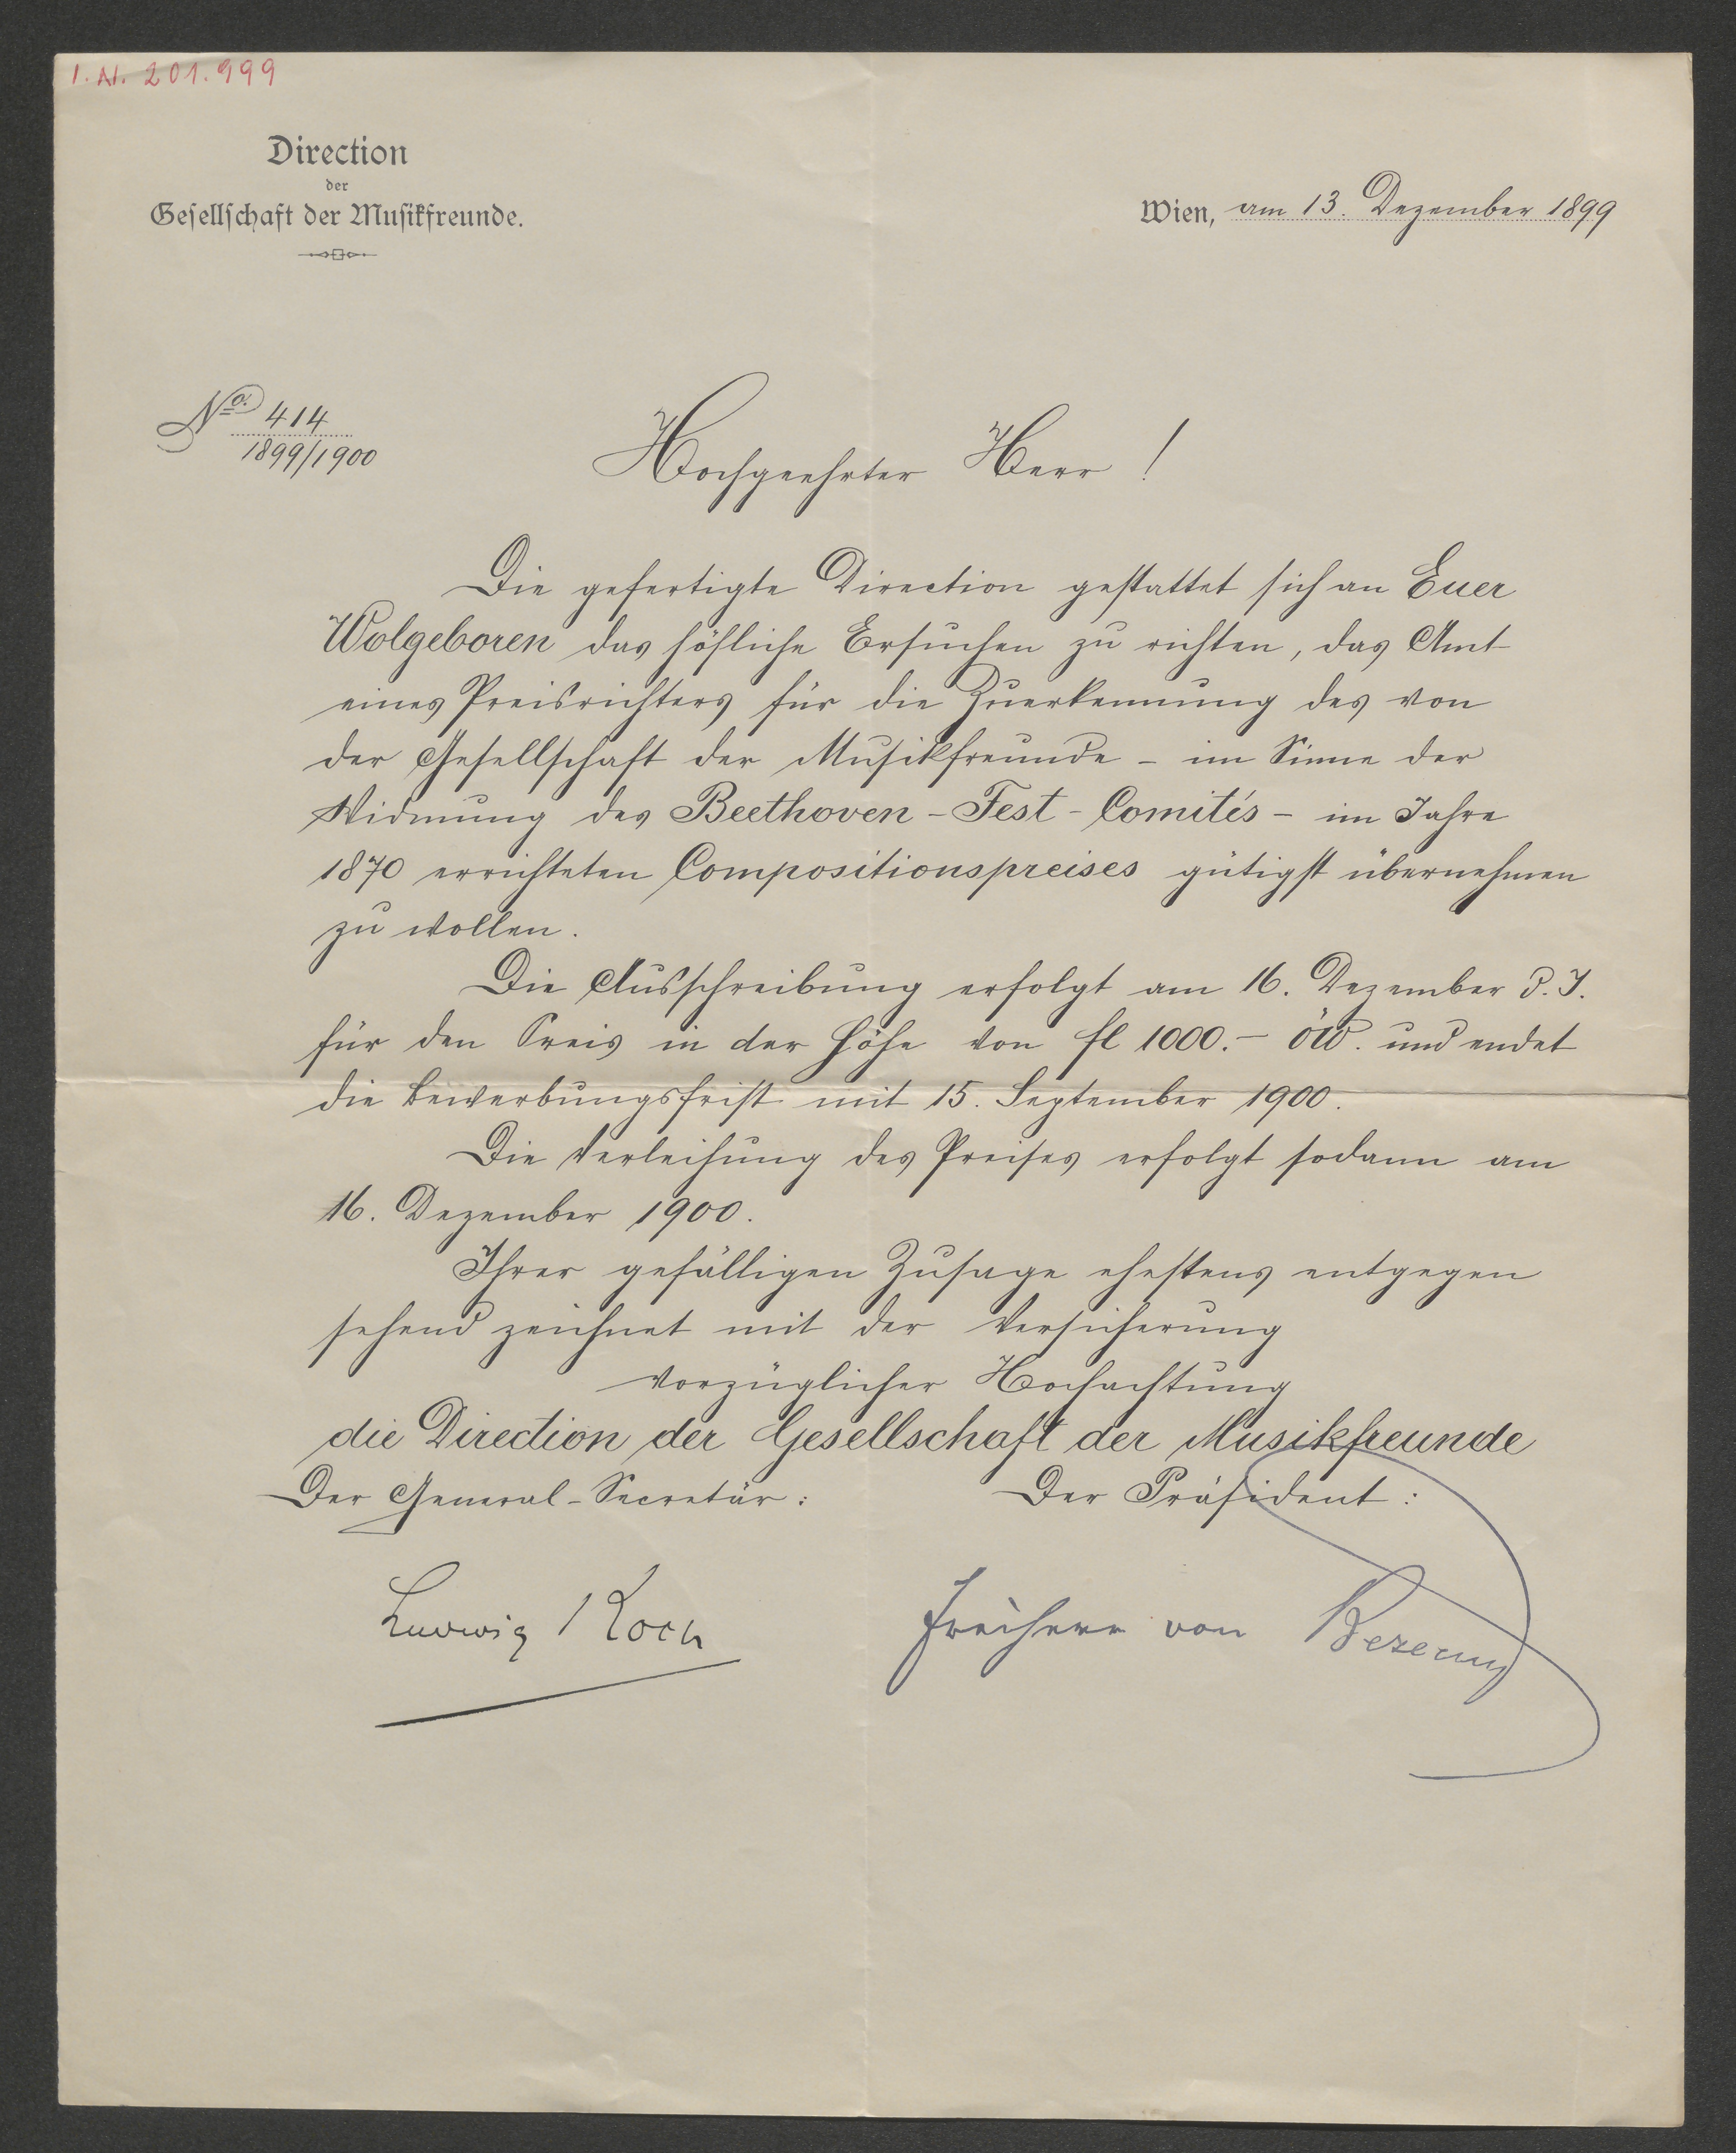 I.N. 201.999
Direction
der
Gesellschaft der Musikfreunde.
Wien, am 13. Dezember 1899
No. 414
1899/1900
Hochgeehrter Herr !
Die gefertigte Direction gestattet sich an Euer
Wolgeboren das höfliche Ersuchen zu richten, das Amt
eines Preisrichters für die Zuerkennung des von
der Gesellschaft der Musikfreunde - im Sinne der
Widmung des Beethoven-Fest-Comités - im Jahre
1870 errichteten Compositionspreises gütigst übernehmen
zu wollen.
Die Ausschreibung erfolgt am 16. Dezember d. J.
für den Preis in der Höhe von fl 1000.- öW. und endet
die Bewerbungsfrist mit 15. September 1900.
Die Verleihung des Preises erfolgt sodann am
16. Dezember 1900.
Ihrer gefälligen Zusage ehestens entgegen
sehend zeichnet mit der Versicherung
vorzüglicher Hochachtung
die Direction der Gesellschaft der Musikfreunde
Der General-Secretär:
Der Präsident:
Ludwig Koch
Freiherr von Bezecny